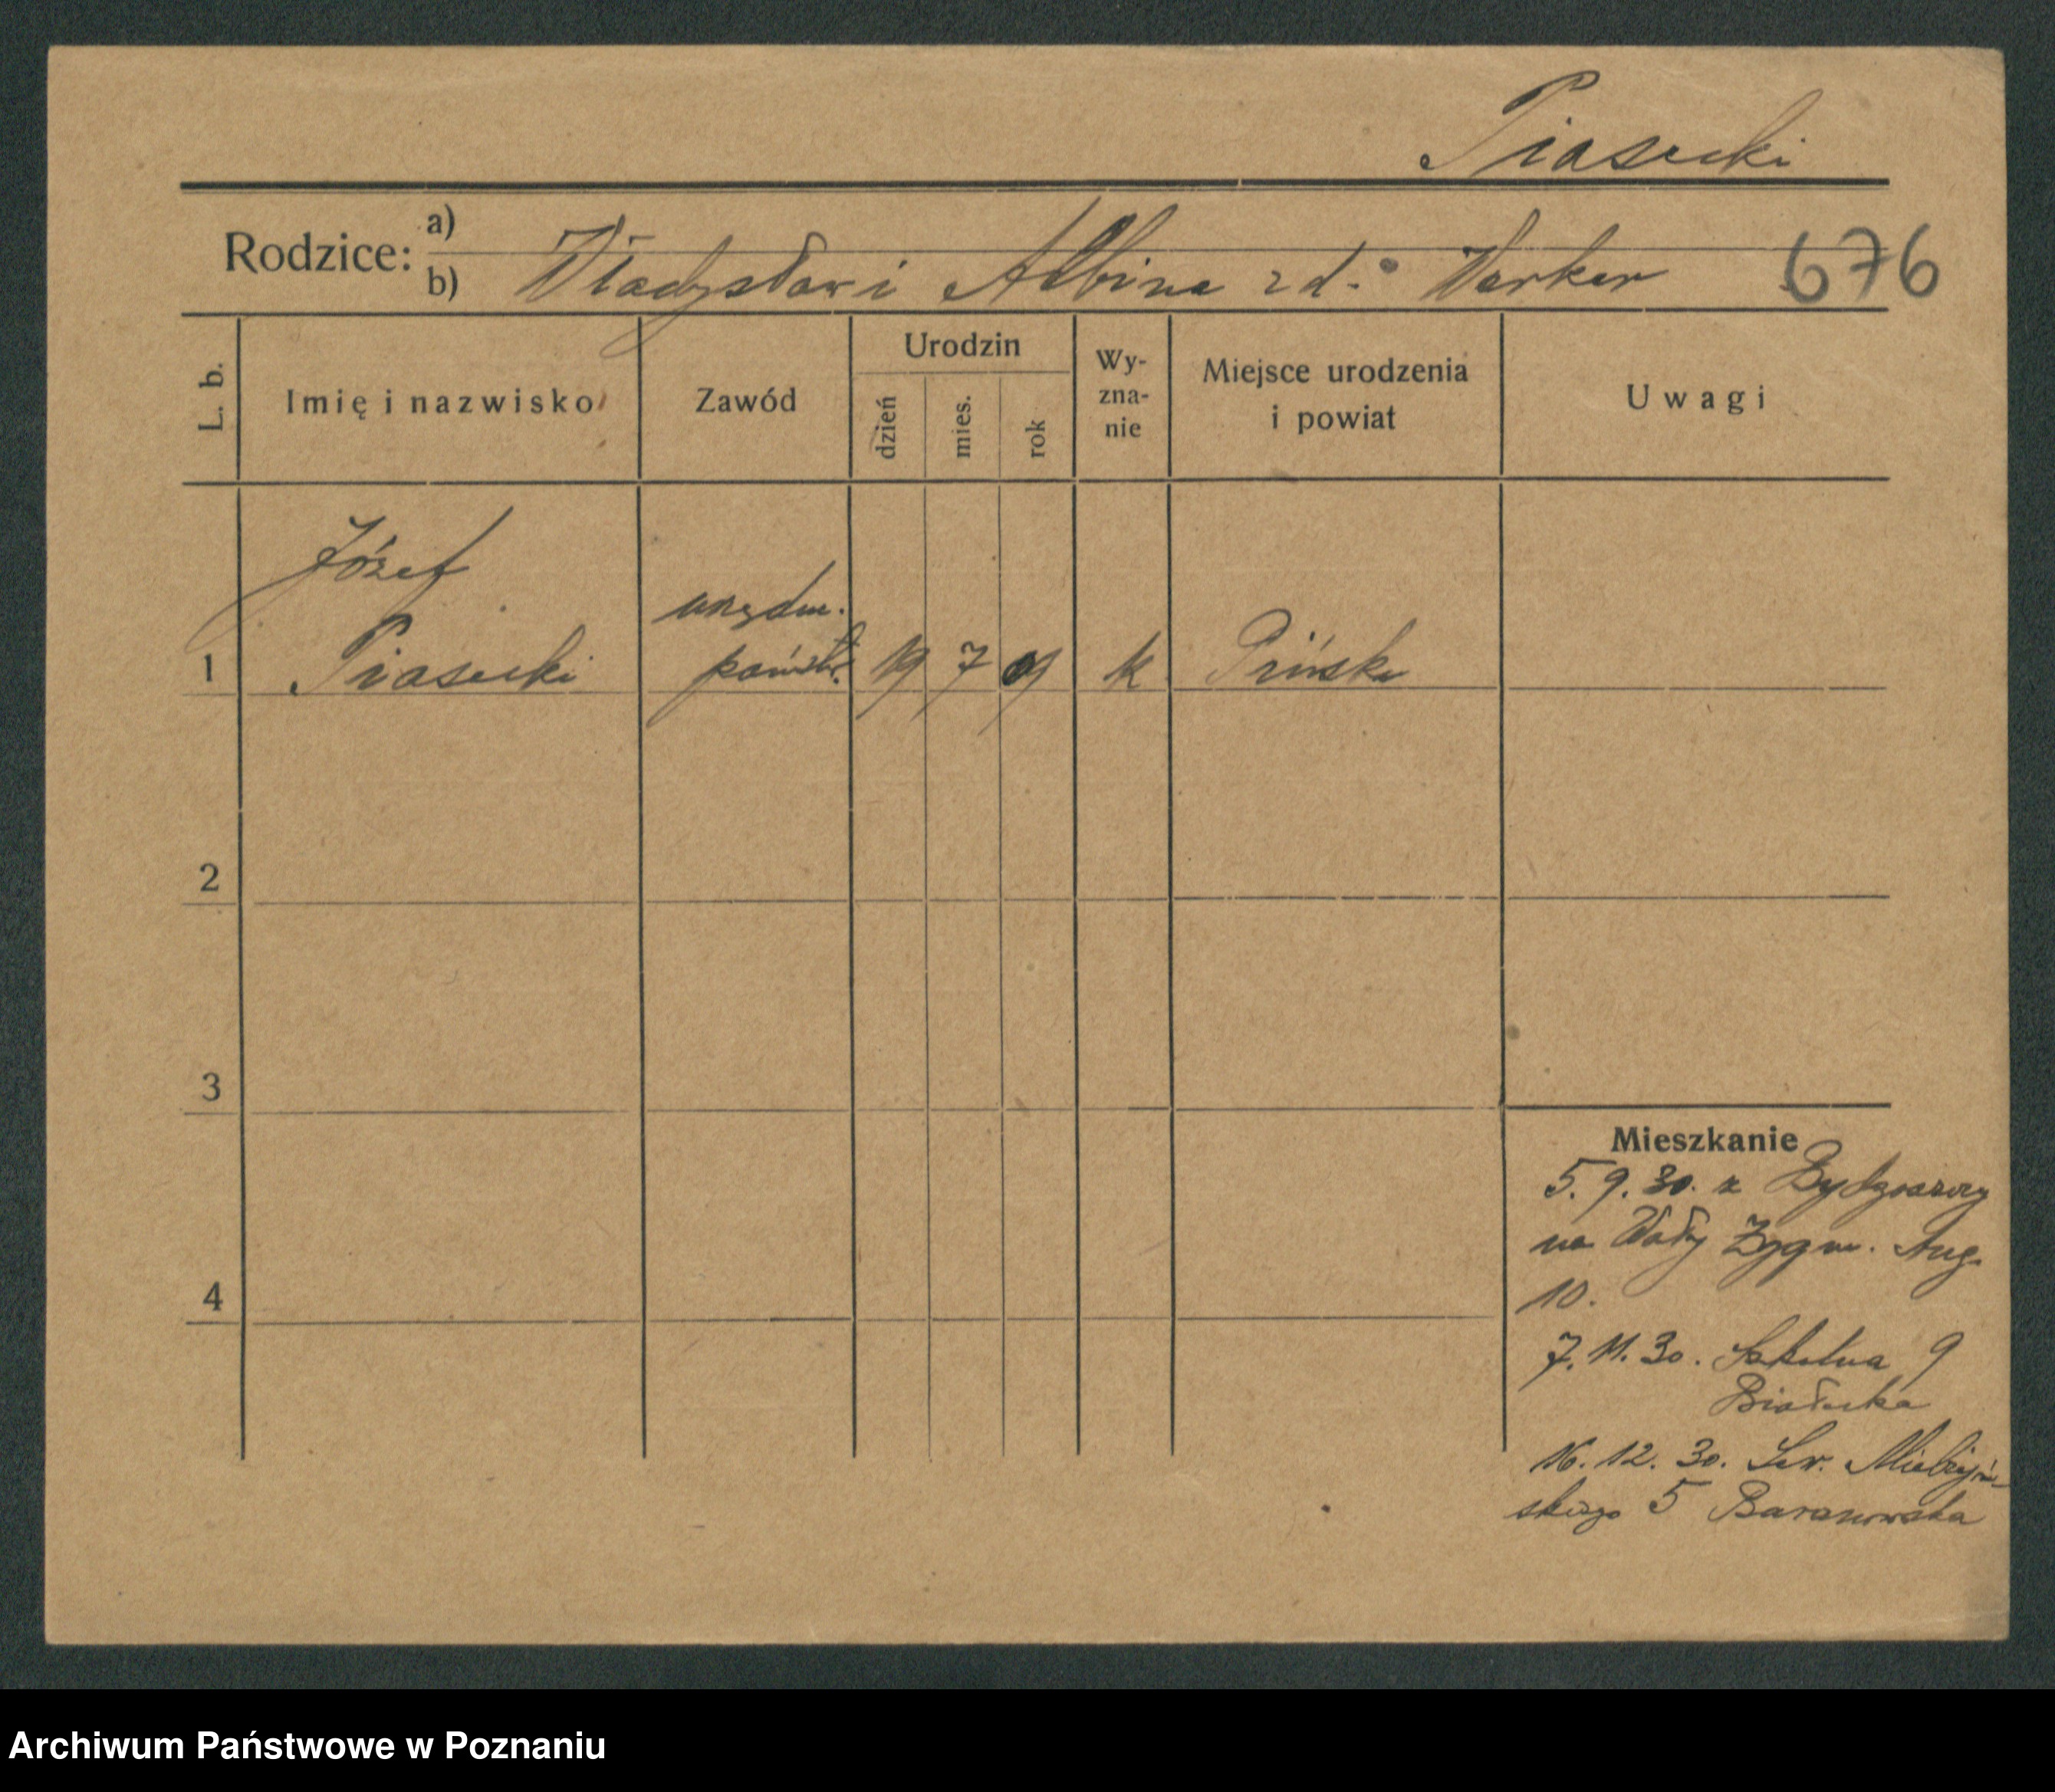 Piasecki
Rodzice: a)
b) Władysław i Albina z d. Werker 676
L. b. Imię i nazwisko Zawód Urodzin dzień mies. rok Wy-zna-nie Miejsce urodzenia i powiat Uwagi
Józef
urzędn.
1 Piasecki państw. 19 7 09 k Pińsk
2
3
Mieszkanie
5. 9. 30. z Bydgoszczy
na Wały Zygm. Aug.
4
10.
7. 11. 30. Szkolna 9
Białecka
16. 12. 30. Sew. Mielżyń-
skiego 5 Baranowska
Archiwum Państwowe w Poznaniu